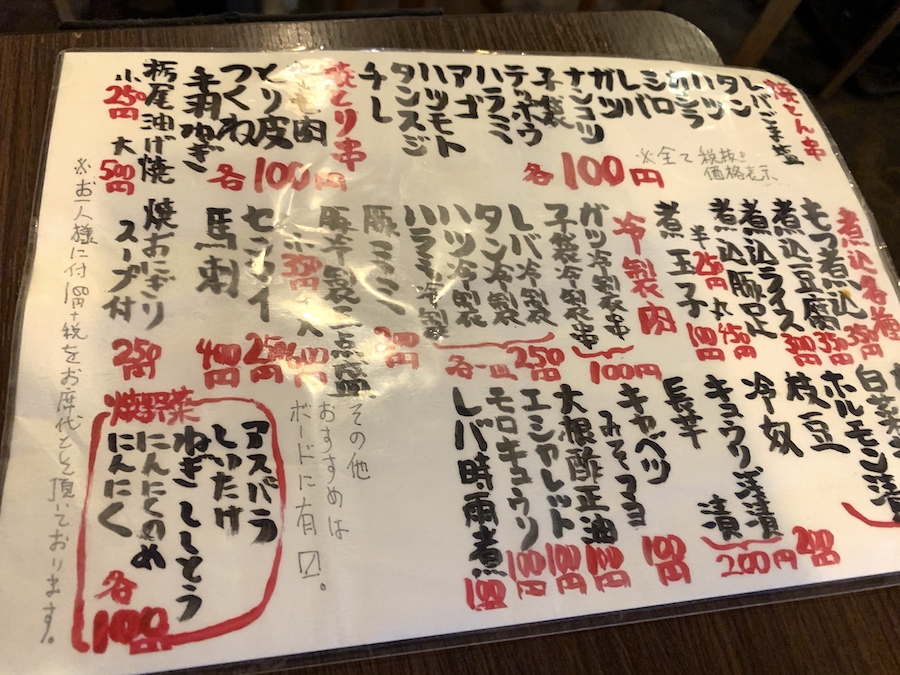 焼とん串
レバごま塩
タン
ハツ
カシラ
シロ
レバ
ガツ
ナンコツ
子袋
テッポウ
ハラミ
アゴ
ハツモト
タンスジ
チレ
各100円
※全て税抜き
価格表示
焼とり串
とり皮
つくね
手羽ねぎ
各100円
栃尾油げ焼
小250円 大500円
煮込各種
もつ煮込 350円
煮込豆腐 350円
煮込ライス
煮込豚足
半250円 丸450円
煮玉子 100円
冷製肉
ガツ冷製串
子袋冷製串
100円
レバ冷製
タン冷製
ハツ冷製
ハラミ冷製
各一皿250円
豚ミミ
豚冷製三点盛
センマイ 250円
馬刺 400円
焼おにぎり
スープ付 250円
ホルモン漬
枝豆
冷奴
200円
キュウリ浅漬
200円
長芋 100円
キャベツ
みそマヨ
大根酢正油 100円
エシャレット 100円
モロキュウリ 100円
レバ時雨煮
その他
おすすめは
ボードに有〼。
焼野菜
アスパラ
しいたけ
ねぎ ししとう
にんにくのめ
にんにく
各100円
※お一人様に付100円+税をお席代として頂いております。